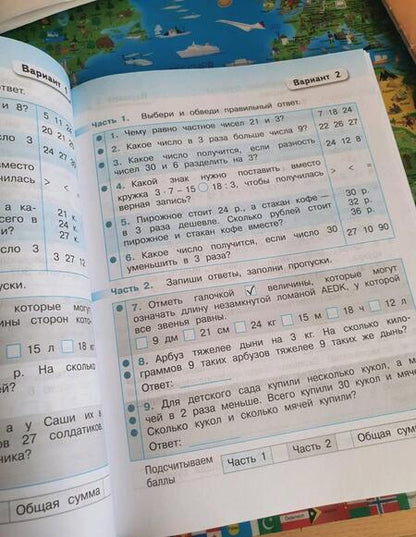 Вариант 1
ответ.
и 8?
5 11 24
20 21
сло 3
24 27
вместо
училась
> < =
а ка-
сего в
и?
21 к.
24 к.
27 к.
сло 3
3 27 12
уски.
которые могут
ины сторон
15 л 18
р. На сколько
ей?
а у Саши их в
ов 27 солдатиков
ника?
Общая сумма
Вариант 2
Часть 1. Выбери и обведи правильный ответ.
1. Чему равно частное чисел 21 и 3?
7 18 24
2. Какое число в 3 раза больше числа 9?
22 26 27
3. Какое число получится, если разность
чисел 30 и 6 разделить на 3?
24 12 8
4. Какой знак нужно поставить вместо
кружка 3 · 7 – 15 ○ 18 : 3, чтобы получилась
верная запись?
> < =
5. Пирожное стоит 24 р., а стакан кофе —
в 3 раза дешевле. Сколько рублей стоит
пирожное и стакан кофе вместе?
30 р.
32 р.
36 р.
6. Какое число получится, если число 30
уменьшить в 3 раза?
27 10 90
Часть 2. Запиши ответы, заполни пропуски.
7. Отметь галочкой ✓ величины, которые могут
означать длину незамкнутой ломаной AEDK, у которой
все звенья равны.
9 дм 21 см 24 кг 15 м 18 ч 12 л
8. Арбуз тяжелее дыни на 3 кг. На сколько кило-
граммов 9 таких арбузов тяжелее 9 таких же дынь?
Ответ:
9. Для детского сада купили несколько кукол, а м
чей в 2 раза меньше. Всего купили 30 кукол и мяч
Сколько кукол и сколько мячей купили?
Ответ:
Подсчитываем
баллы
Часть 1 Часть 2 Общая сум